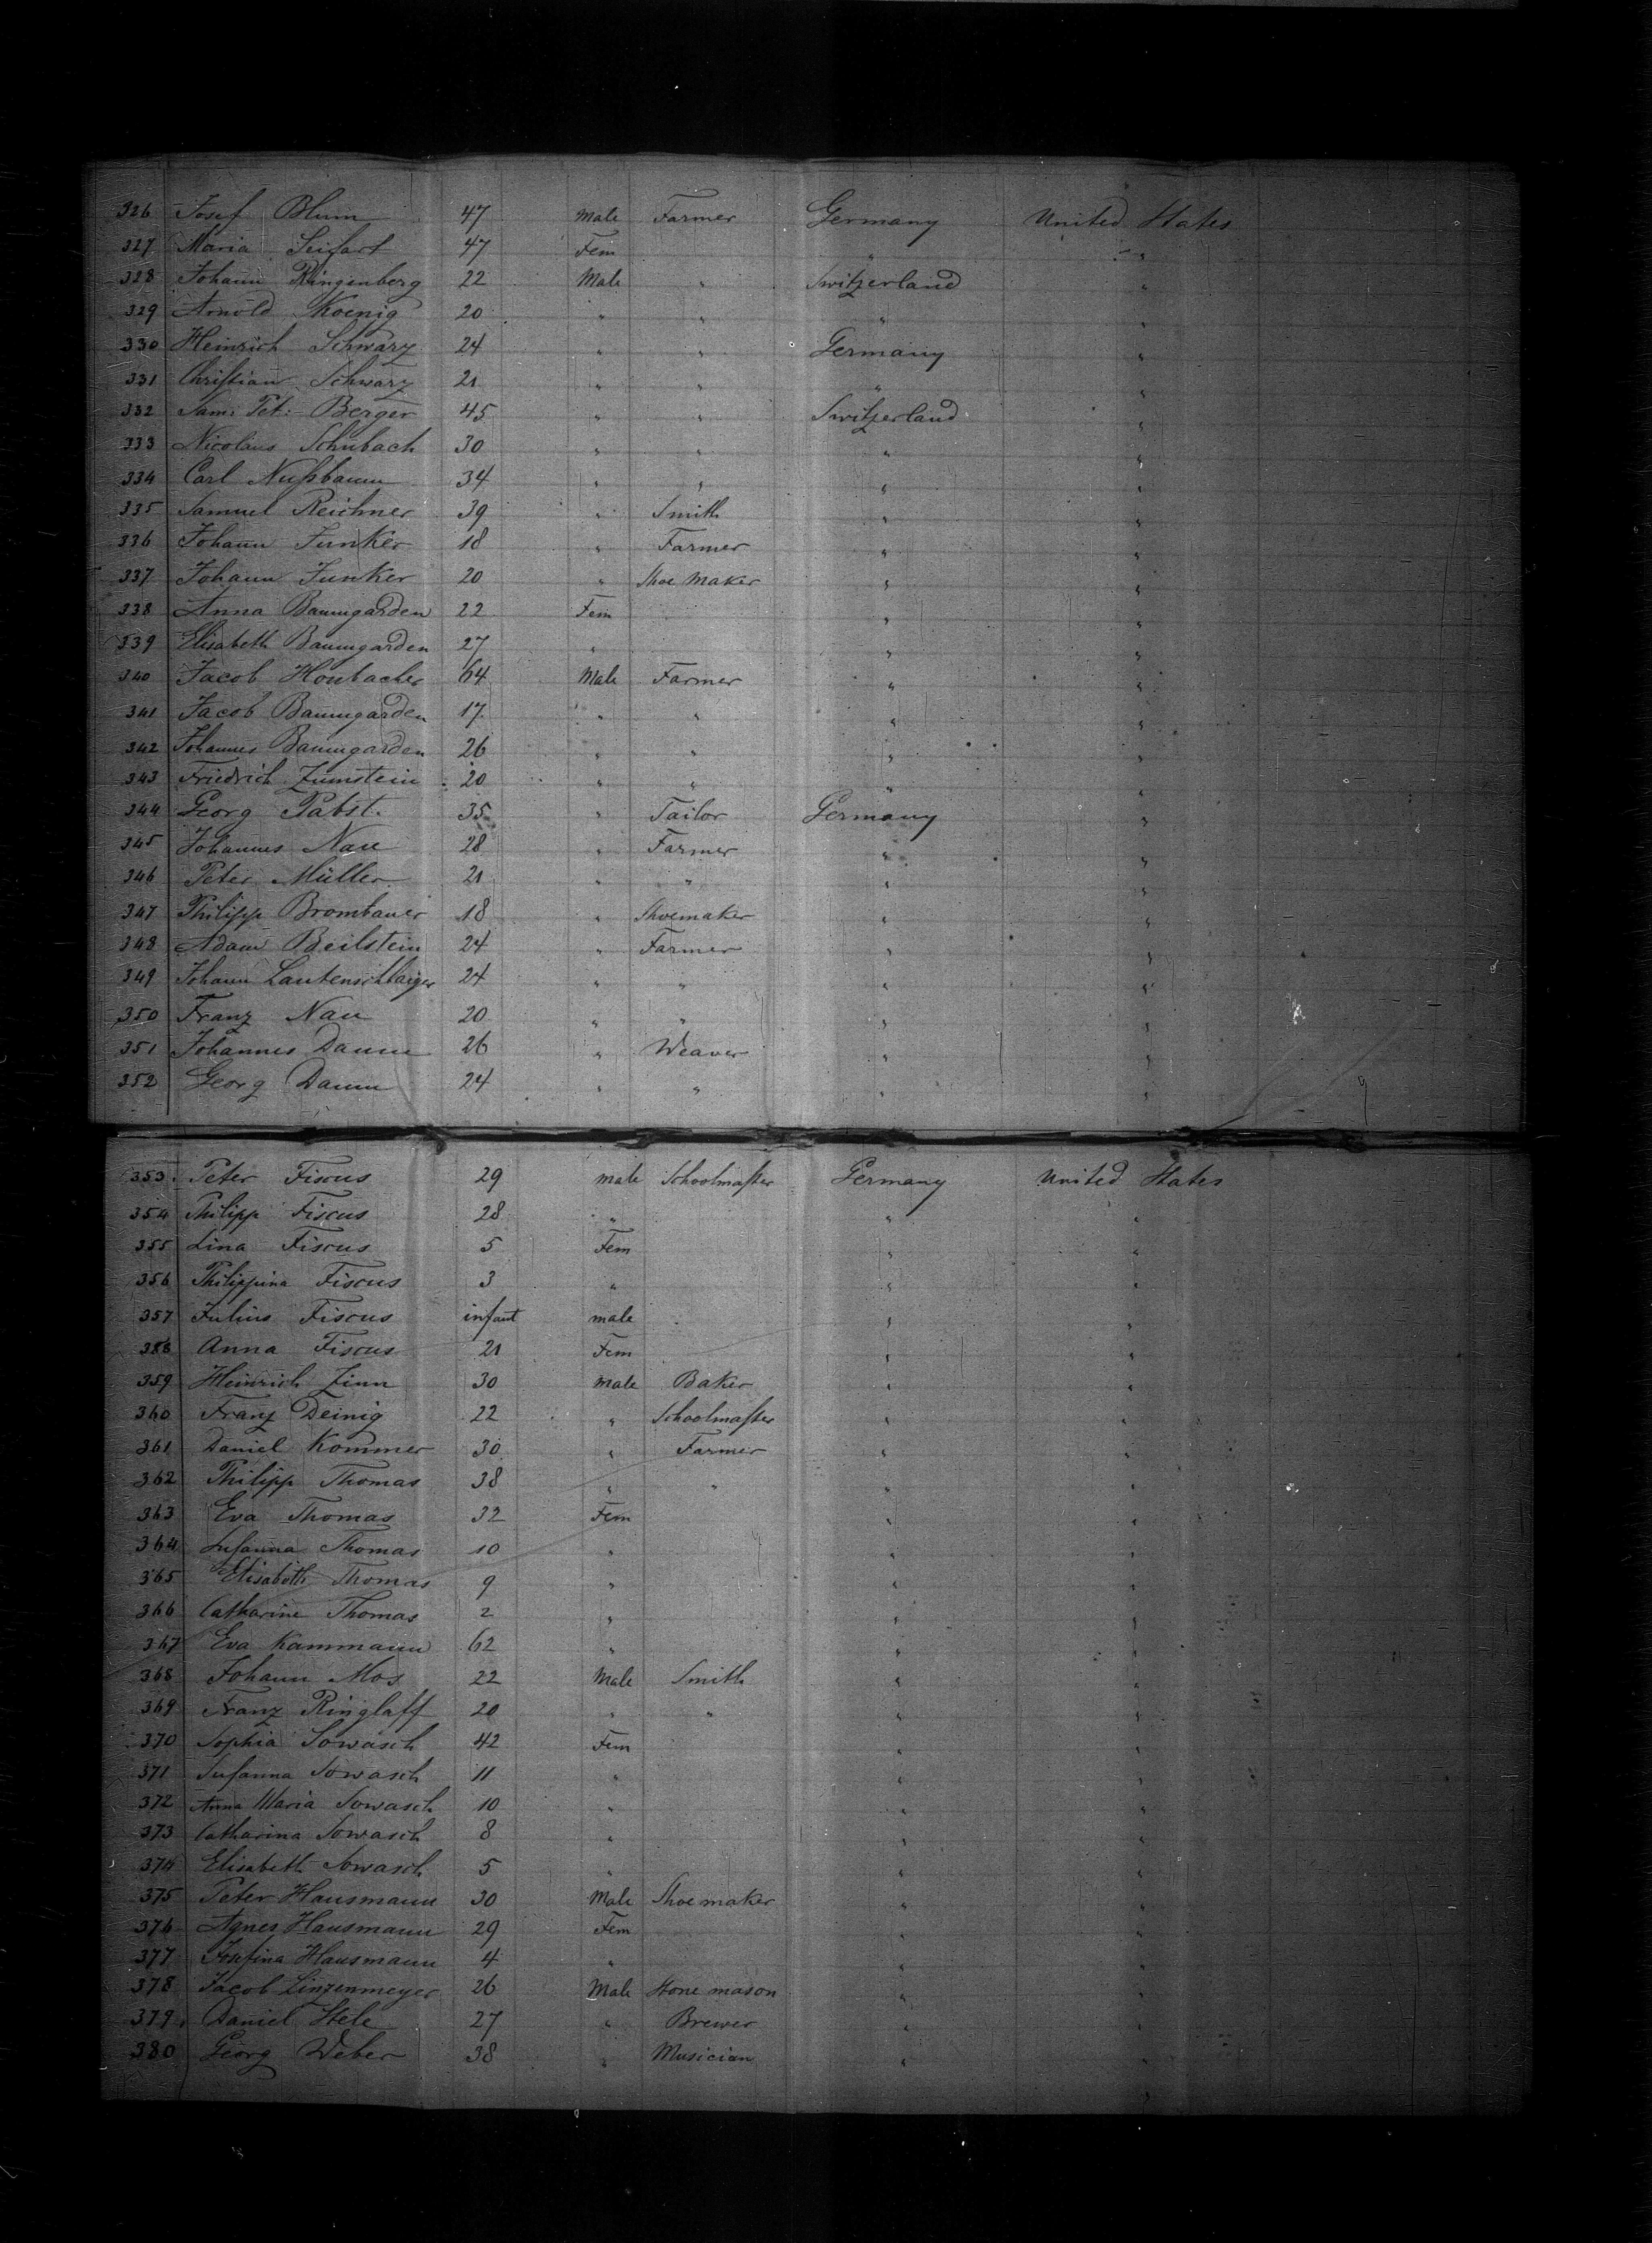 326 Josef Blum 47 Male Farmer Germany United States
327 Maria Seifart 47 Fem " "
328 Johann Ringenberg 22 Male " Switzerland "
329 Arnold Koenig 20 " " " "
330 Heinrich Schwarz 24 " " Germany "
331 Christian Schwarz 21 " " " "
332 Sam: Pet: Berger 45 " " Switzerland "
333 Nicolaus Schubach 30 " " " "
334 Carl Nußbaum 34 " " " "
335 Samuel Reichner 39 " Smith " "
336 Johann Junker 18 " Farmer " "
337 Johann Junker 20 " Shoe maker " "
338 Anna Baumgarden 22 Fem " "
339 Elisabeth Baumgarden 27 " " "
340 Jacob Houbacher 64 Male Farmer " "
341 Jacob Baumgarden 17 " " " "
342 Johannes Baumgarden 26 " " " "
343 Friedrich Zumstein 20 " " " "
344 Georg Pabst 35 " Tailor Germany "
345 Johannes Nau 28 " Farmer " "
346 Peter Müller 21 " " " "
347 Philipp Brombauer 18 " Shoemaker " "
348 Adam Beilstein 24 " Farmer " "
349 Johann Lautenschlaiger 24 " " " "
350 Franz Nau 20 " " " "
351 Johannes Daum 26 " Weaver " "
352 Georg Daum 24 " " " "
353 Peter Fiscus 29 male Schoolmaster Germany United States
354 Philipp Fiscus 28 " " "
355 Lina Fiscus 5 Fem " "
356 Philippina Fiscus 3 " " "
357 Julius Fiscus infant male " "
358 Anna Fiscus 21 Fem " "
359 Heinrich Zinn 30 male Baker " "
360 Franz Deinig 22 " Schoolmaster " "
361 Daniel Kommer 30 " Farmer " "
362 Philipp Thomas 38 " " " "
363 Eva Thomas 32 Fem " "
364 Susanna Thomas 10 " " "
365 Elisabeth Thomas 9 " " "
366 Catharine Thomas 2 " " "
367 Eva Kammann 62 " " "
368 Johann Mos 22 Male Smith " "
369 Franz Ringlaff 20 " " " "
370 Sophia Sowasch 42 Fem " "
371 Susanna Sowasch 11 " " "
372 Anna Maria Sowasch 10 " " "
373 Catharina Sowasch 8 " " "
374 Elisabeth Sowasch 5 " " "
375 Peter Hausmann 30 Male Shoe maker " "
376 Agnes Hausmann 29 Fem " "
377 Josefina Hausmann 4 " " "
378 Jacob Linzenmeyer 26 Male Stone mason " "
379 Daniel Stele 27 " Brewer " "
380 Georg Weber 38 " Musician " "